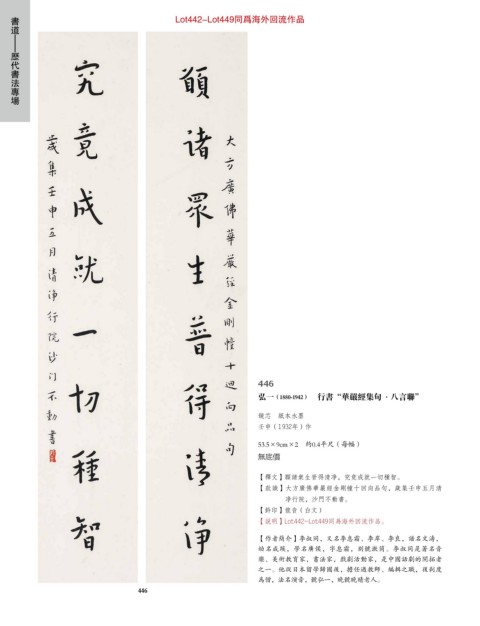 Lot442-Lot449同爲海外回流作品
書道——歷代書法專場
大方廣佛華嚴經金剛幢十迴向品句
願諸眾生普得清淨
究竟成就一切種智
歲集壬申五月清淨行院沙門不動書
446
446
弘一(1880-1942) 行書“華嚴經集句·八言聯”
鏡芯 紙本水墨
壬申(1932年)作
53.5×9cm×2 約0.4平尺(每幅)
無底價
【釋文】願諸衆生普得清淨,究竟成就一切種智。
【款識】大方廣佛華嚴經金剛幢十回向品句,歲集壬申五月清
淨行院,沙門不動書。
【鈐印】龍音(白文)
【說明】Lot442-Lot449同爲海外回流作品。
【作者簡介】李叔同,又名李息霜、李岸、李良,譜名文濤,
幼名成蹊,學名廣侯,字息霜,別號漱筒。李叔同是著名音
樂、美術教育家,書法家,戲劇活動家,是中國話劇的開拓者
之一。他從日本留學歸國後,擔任過教師、編輯之職,後剃度
爲僧,法名演音,號弘一,晚號晚晴老人。